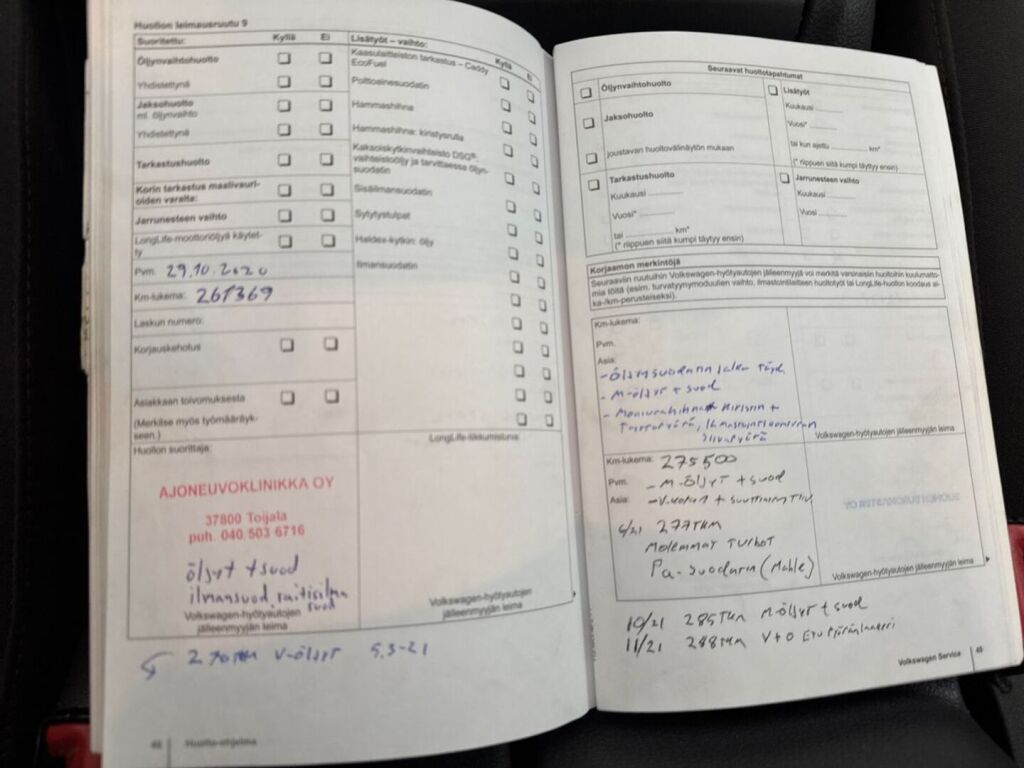 Huollon leimausruutu 9
Suoritettu: Kyllä Ei
Öljynvaihtohuolto
Yhdistettynä
Jaksohuolto
ml. öljynvaihto
Yhdistettynä
Tarkastushuolto
Korin tarkastus maalivauri-
oiden varalta:
Jarrunesteen vaihto
LongLife-moottoriöljyä käytet-
ty
Pvm. 29.10.2020
Km-lukema: 261369
Laskun numero:
Korjauskehotus
Asiakkaan toivomuksesta
(Merkitse myös työmääräyk-
seen.)
Huollon suorittaja:
AJONEUVOKLINIKKA OY
37800 Toijala
puh. 040 503 6716
öljyt + suod
ilmansuod raitisilma
suod
Volkswagen-hyötyautojen
jälleenmyyjän leima
270TKM V-öljyt 5.3-21
48 Huolto-ohjelma
Lisätyöt – vaihto: Kyllä Ei
Kaasulaitteiston tarkastus – Caddy
EcoFuel
Polttoainesuodatin
Hammashihna
Hammashihna: kiristysrulla
Kaksoiskytkinvaihteisto DSG®:
vaihteistoöljy ja tarvittaessa öljyn-
suodatin
Sisäilmansuodatin
Sytytystulpat
Haldex-kytkin: öljy
Ilmansuodatin
LongLife-liikkumisturva:
Volkswagen-hyötyautojen
jälleenmyyjän leima
Seuraavat huoltotapahtumat
Öljynvaihtohuolto
Jaksohuolto
joustavan huoltovälinäytön mukaan
Lisätyöt
Kuukausi
Vuosi*
tai kun ajettu km*
(* riippuen siitä kumpi täytyy ensin)
Tarkastushuolto
Kuukausi
Vuosi*
tai km*
(* riippuen siitä kumpi täytyy ensin)
Jarrunesteen vaihto
Kuukausi
Vuosi
Korjaamon merkintöjä
Seuraaviin ruutuihin Volkswagen-hyötyautojen jälleenmyyjä voi merkitä varsinaisiin huoltoihin kuulumatto-
mia töitä (esim. turvatyynymoduulien vaihto, ilmastointilaitteen huoltotyöt tai LongLife-huollon koodaus ai-
ka-/km-perusteiseksi).
Km-lukema:
Pvm.
Asia:
- Öljynsuodatin
- M-öljyt + suod
- Moniurahihnan kiristin +
Volkswagen-hyötyautojen jälleenmyyjän leima
Km-lukema: 275500
Pvm. - M-öljyt + suod
Asia:
6/21 277TKM
Molemmat turbot
Pa-suodatin (Mahle)
Volkswagen-hyötyautojen jälleenmyyjän leima
10/21 285TKM M-öljyt + suod
11/21 288TKM V+O Etupyöränlaakeri
Volkswagen Service 49